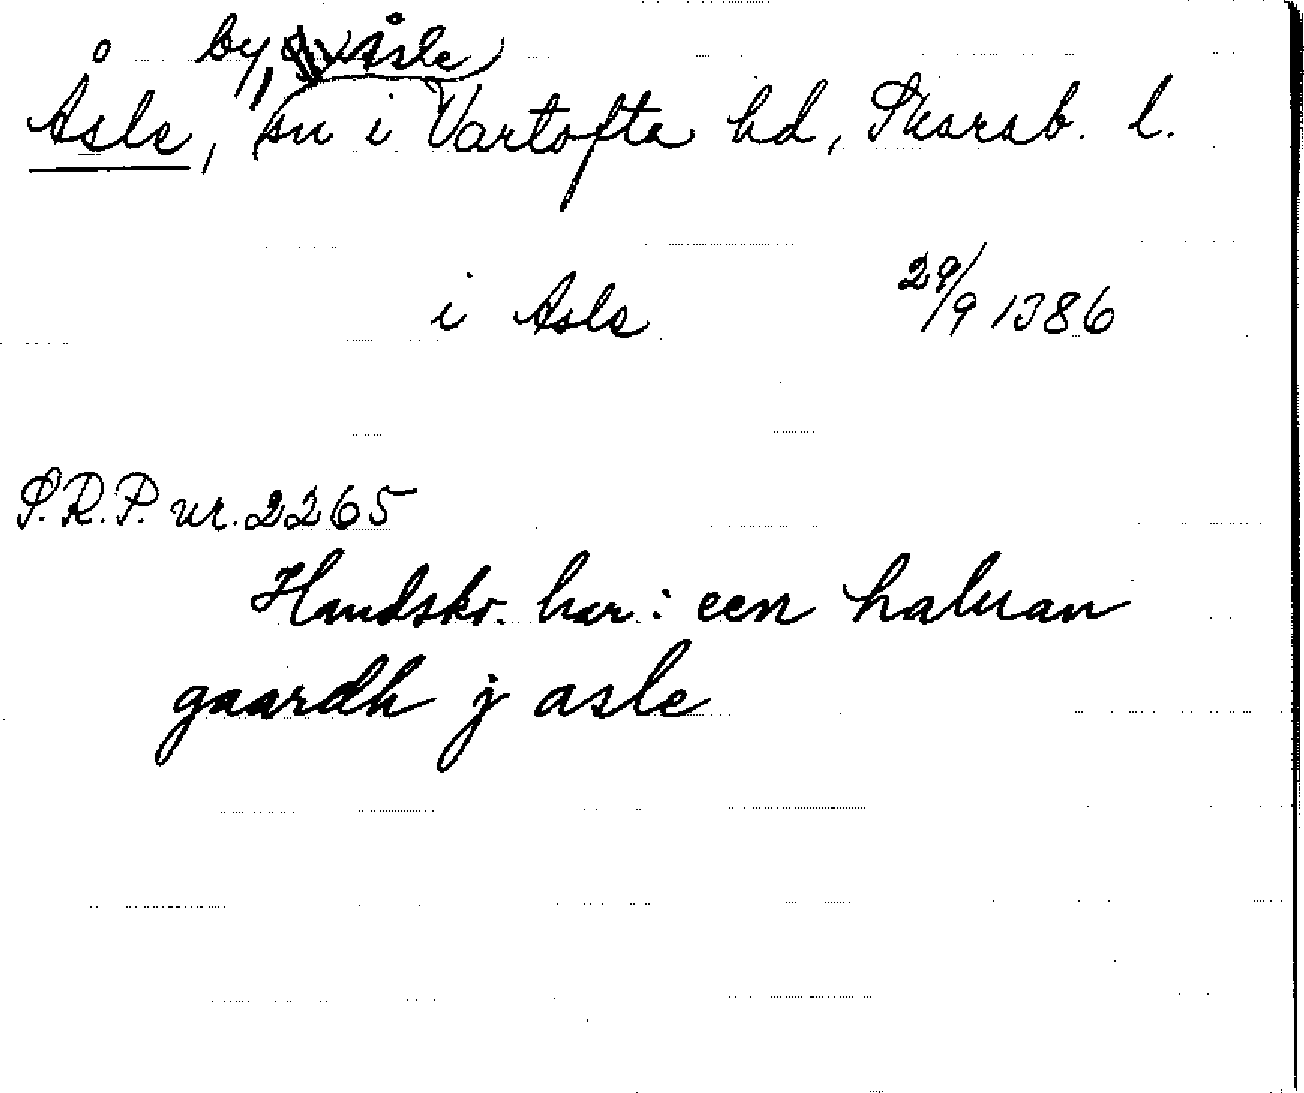 by, Åsle
Åsle, sn i Vartofta hd, Skarab. l.
i Asle 29/9 1386
S.R.P. nr. 2265
Handskr. har: een haluan
gaardh j asle